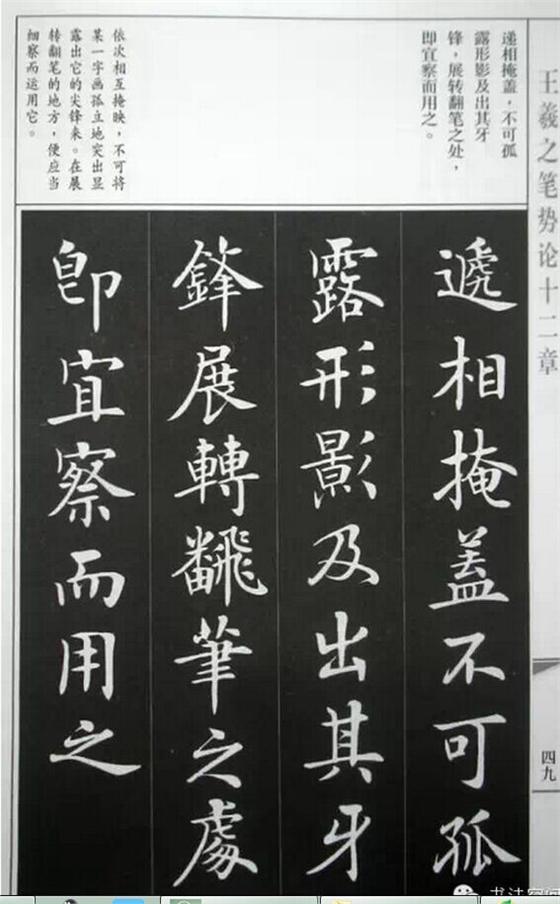 王羲之笔势论十二章
四九
递相掩盖，不可孤
露形影及出其牙
锋，展转翻笔之处，
即宜察而用之。
依次相互掩映，不可将
某一字画孤立地突出显
露出它的尖锋来。在展
转翻笔的地方，便应当
细察而运用它。
遞相掩蓋不可孤
露形影及出其牙
鋒展轉翻筆之處
即宜察而用之